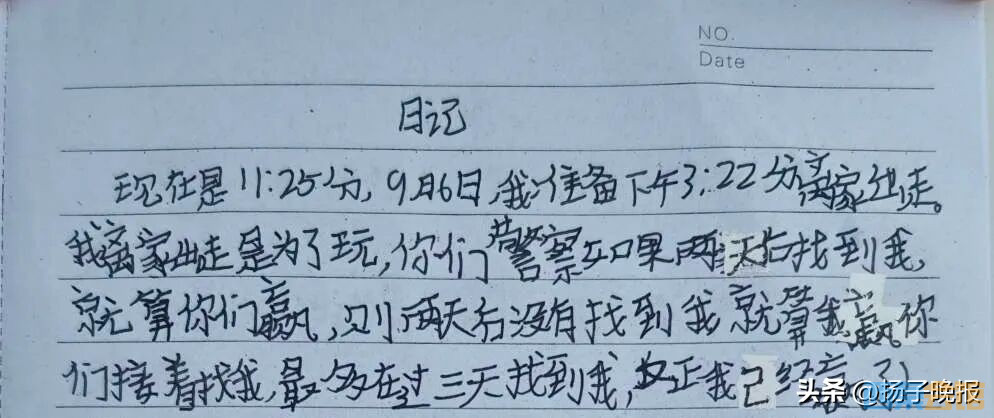 NO.
Date
日记
现在是11:25分,9月6日,我准备下午3:22分离家出走。
我离家出走是为了玩,你们警察如果两天后找到我,
就算你们赢,则两天后没有找到我就算我赢。你
们接着找我,最多在过三天找到我,反正我已经
头条@扬子晚报